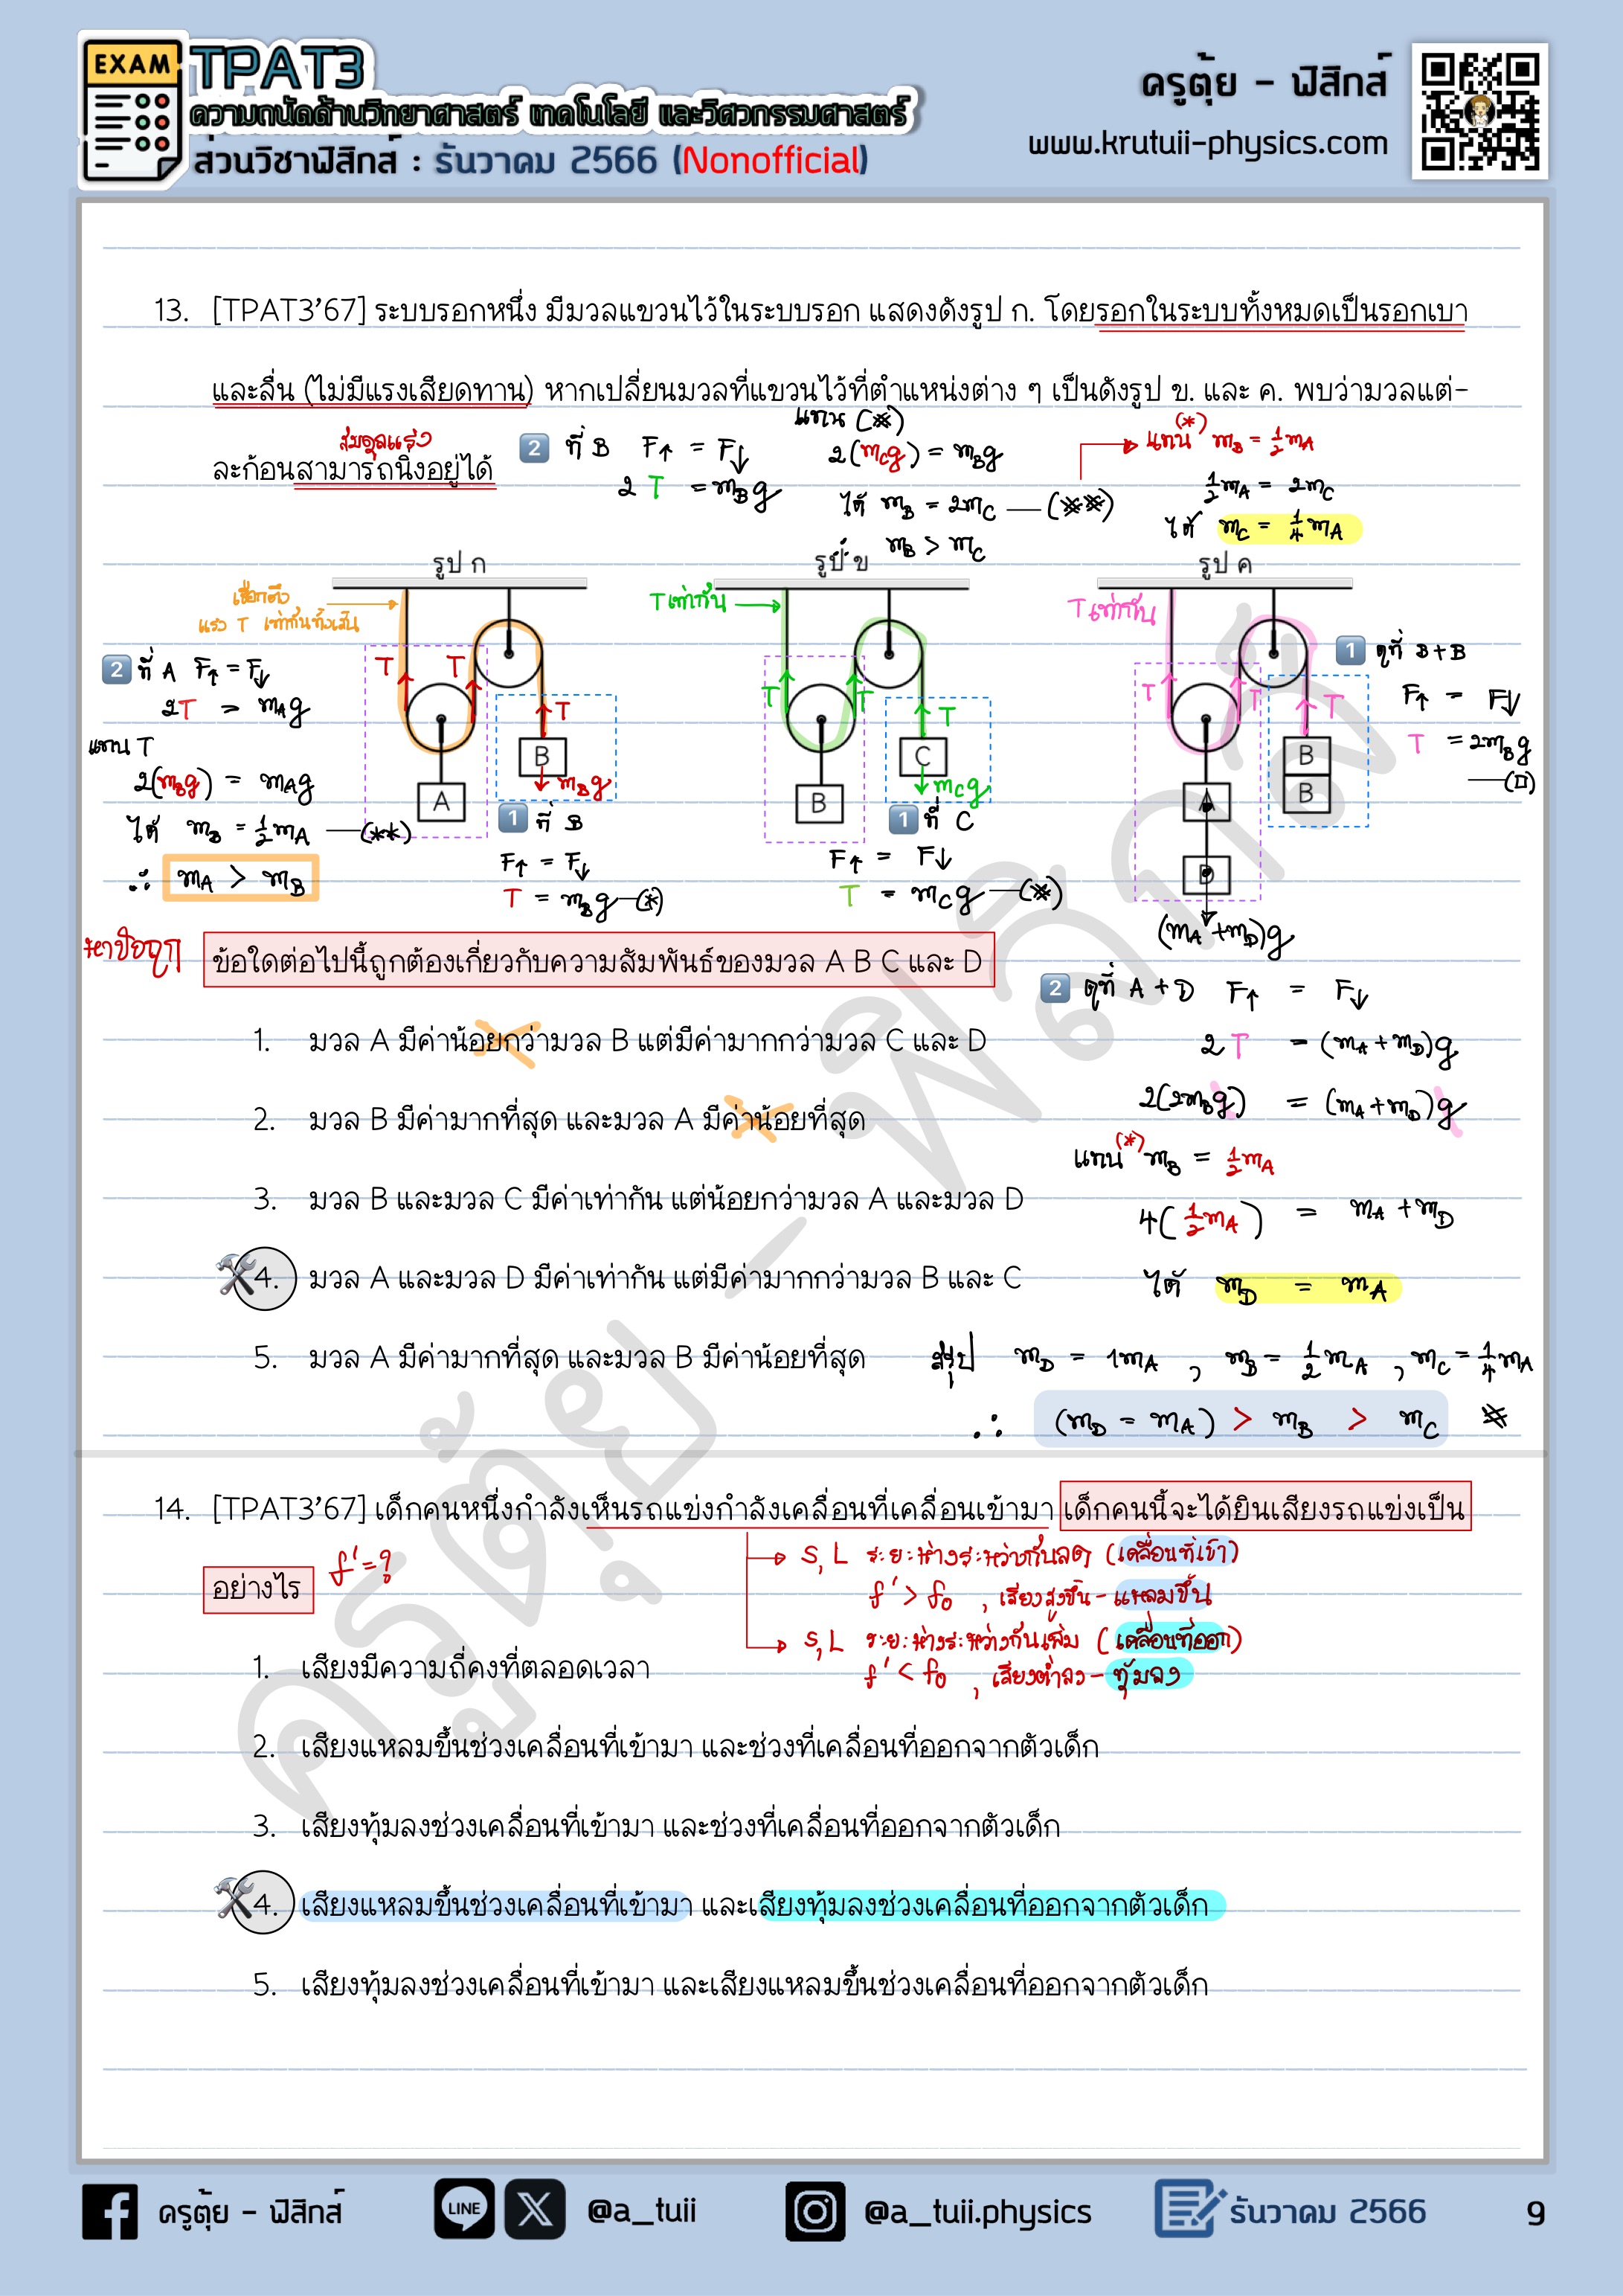 EXAM
TPAT3
ความถนัดด้านวิทยาศาสตร์ เทคโนโลยี และวิศวกรรมศาสตร์
ส่วนวิชาฟิสิกส์ : ธันวาคม 2566 (Nonofficial)
ครูตุ้ย - ฟิสิกส์
www.krutuii-physics.com
13. [TPAT3'67] ระบบรอกหนึ่ง มีมวลแขวนไว้ในระบบรอก แสดงดังรูป ก. โดยรอกในระบบทั้งหมดเป็นรอกเบา
และลื่น (ไม่มีแรงเสียดทาน) หากเปลี่ยนมวลที่แขวนไว้ที่ตำแหน่งต่าง ๆ เป็นดังรูป ข. และ ค. พบว่ามวลแต่-
ละก้อนสามารถนิ่งอยู่ได้
สมดุลแรง
2 ที่ B F↑ = F↓
2T = mBg
แทน (※)
2(mCg) = mBg
ได้ mB = 2mC —(※※)
∴ mB > mC
แทน(*) mB = ½mA
½mA = 2mC
ได้ mC = ¼mA
รูป ก
เชือกตึง
แรง T เท่ากันทั้งเส้น
2 ที่ A F↑ = F↓
2T = mAg
แทน T
2(mBg) = mAg
ได้ mB = ½mA —(**)
∴ mA > mB
T T T
A
B
mBg
1 ที่ B
F↑ = F↓
T = mBg —(*)
รูป ข
T เท่ากัน
T T T
B
C
mCg
1 ที่ C
F↑ = F↓
T = mCg —(※)
รูป ค
T เท่ากัน
T T T
A
D
B
B
(mA+mD)g
1 ดูที่ B+B
F↑ = F↓
T = 2mBg
—(□)
2 ดูที่ A+D F↑ = F↓
2T = (mA+mD)g
2(2mBg) = (mA+mD)g
แทน(*) mB = ½mA
4(½mA) = mA+mD
ได้ mD = mA
หาข้อถูก
ข้อใดต่อไปนี้ถูกต้องเกี่ยวกับความสัมพันธ์ของมวล A B C และ D
1. มวล A มีค่าน้อยกว่ามวล B แต่มีค่ามากกว่ามวล C และ D
2. มวล B มีค่ามากที่สุด และมวล A มีค่าน้อยที่สุด
3. มวล B และมวล C มีค่าเท่ากัน แต่น้อยกว่ามวล A และมวล D
4. มวล A และมวล D มีค่าเท่ากัน แต่มีค่ามากกว่ามวล B และ C
5. มวล A มีค่ามากที่สุด และมวล B มีค่าน้อยที่สุด
สรุป mD = 1mA , mB = ½mA , mC = ¼mA
∴ (mD = mA) > mB > mC ※
14. [TPAT3'67] เด็กคนหนึ่งกำลังเห็นรถแข่งกำลังเคลื่อนที่เคลื่อนเข้ามา เด็กคนนี้จะได้ยินเสียงรถแข่งเป็น
อย่างไร f' = ?
S, L ระยะห่างระหว่างกันลด (เคลื่อนที่เข้า)
f' > f0 , เสียงสูงขึ้น - แหลมขึ้น
S, L ระยะห่างระหว่างกันเพิ่ม (เคลื่อนที่ออก)
f' < f0 , เสียงต่ำลง - ทุ้มลง
1. เสียงมีความถี่คงที่ตลอดเวลา
2. เสียงแหลมขึ้นช่วงเคลื่อนที่เข้ามา และช่วงที่เคลื่อนที่ออกจากตัวเด็ก
3. เสียงทุ้มลงช่วงเคลื่อนที่เข้ามา และช่วงที่เคลื่อนที่ออกจากตัวเด็ก
4. เสียงแหลมขึ้นช่วงเคลื่อนที่เข้ามา และเสียงทุ้มลงช่วงเคลื่อนที่ออกจากตัวเด็ก
5. เสียงทุ้มลงช่วงเคลื่อนที่เข้ามา และเสียงแหลมขึ้นช่วงเคลื่อนที่ออกจากตัวเด็ก
ครูตุ้ย - ฟิสิกส์
ครูตุ้ย - ฟิสิกส์
LINE
@a_tuii
@a_tuii.physics
ธันวาคม 2566
9